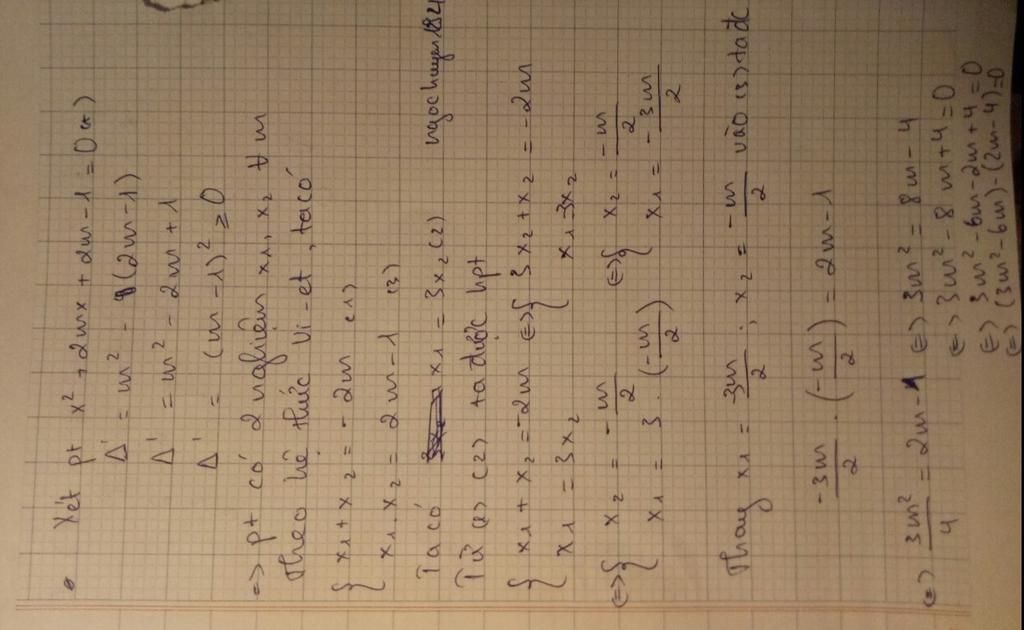 Xét pt x² + 2mx + 2m - 1 = 0 (*)
Δ' = m² - (2m - 1)
Δ' = m² - 2m + 1
Δ' = (m - 1)² ≥ 0
=> pt có 2 nghiệm x₁, x₂ ∀ m
Theo hệ thức Vi-et, ta có
{ x₁ + x₂ = - 2m (1)
x₁ . x₂ = 2m - 1 (3)
Ta có x₁ = 3x₂ (2) ngochuyen1284
Từ (1) (2) ta được hpt
{ x₁ + x₂ = -2m (=> { 3x₂ + x₂ = -2m
x₁ = 3x₂ x₁ = 3x₂
(=> { x₂ = -m/2 (=> { x₂ = -m/2
x₁ = 3 . (-m/2) x₁ = -3m/2
Thay x₁ = -3m/2 ; x₂ = -m/2 vào (3) ta đc
-3m/2 . (-m/2) = 2m - 1
(=> 3m²/4 = 2m - 1 (=> 3m² = 8m - 4
(=> 3m² - 8m + 4 = 0
(=> 3m² - 6m - 2m + 4 = 0
(=> (3m² - 6m) - (2m - 4) = 0